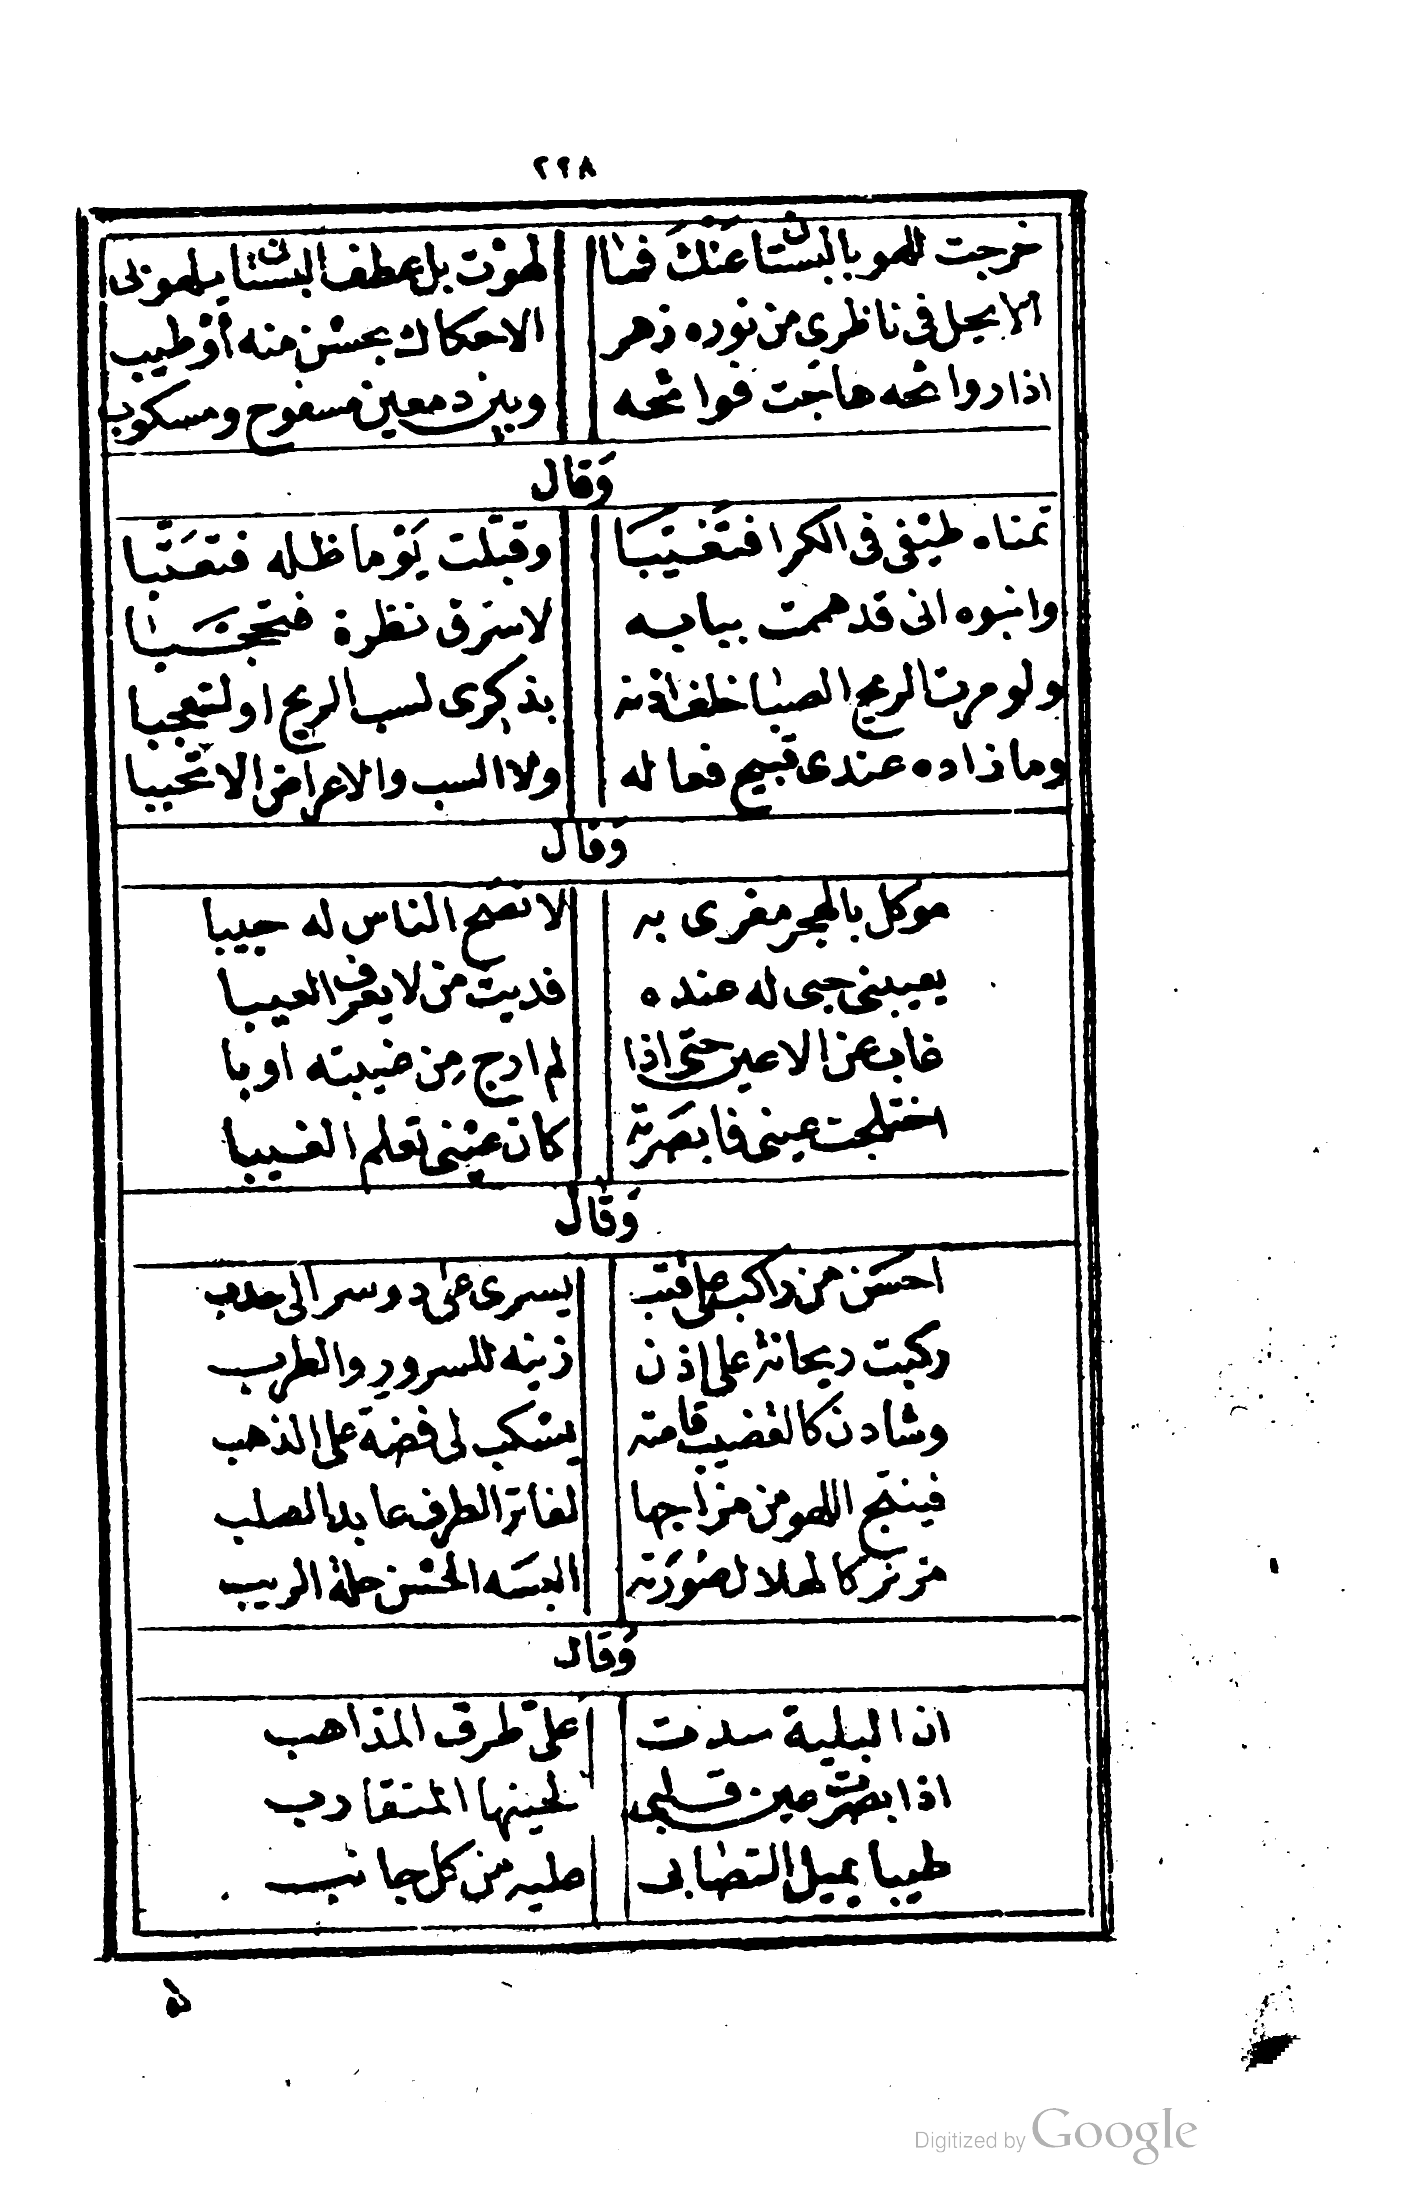 ٢٩٨
خرجت للهو بالبستان عنك فما لهوت بل عطف البستان يلهو لى
الا يحل فى ناظرى من نوره زهر الا حكاك بحسن منه أو طيب
اذا روائحه هاجت فوائحه وبين دمعين مسفوح ومسكوب
وَقال
تمناه طيفى فى الكرا فتغيبا وقبلت يوما ظله فتعتبا
وانبوه انى قد هممت ببابه لاسرق نظرة فتحجبا
ولو مرت الريح الصبا خلف اذنه بذكرى لسب الريح او لتعجبا
وما زاده عندى قبيح فعاله ولا السب والاعراض الا تحببا
وَقال
موكل بالهجر مغرى به لا تصح الناس له حبيبا
يعيبنى حبى له عنده فديت من لا يعرف العيبا
غاب عن الاعين حتى اذا لم ارج من غيبته اوبا
اختلجت عينى فابصرته كان عينى تعلم الغيبا
وَقال
احسن من راكب على قتب يسرى على دوسر الى حدب
ركبت ريحانة على اذن زينه للسرور والطرب
وشادن كالقضيب قامته يسكب لى فضة على الذهب
فينتج اللهو من مزاجها لفاتر الطرف عابد الصلب
مزنر كالهلال صورته البسه الحسن حلة الريب
وَقال
ان البلية سدت على طرق المذاهب
اذا بصرت عين قلبى لحينها المتقارب
طيبا يميل التصابى عليه من كل جانب
Digitized by Google